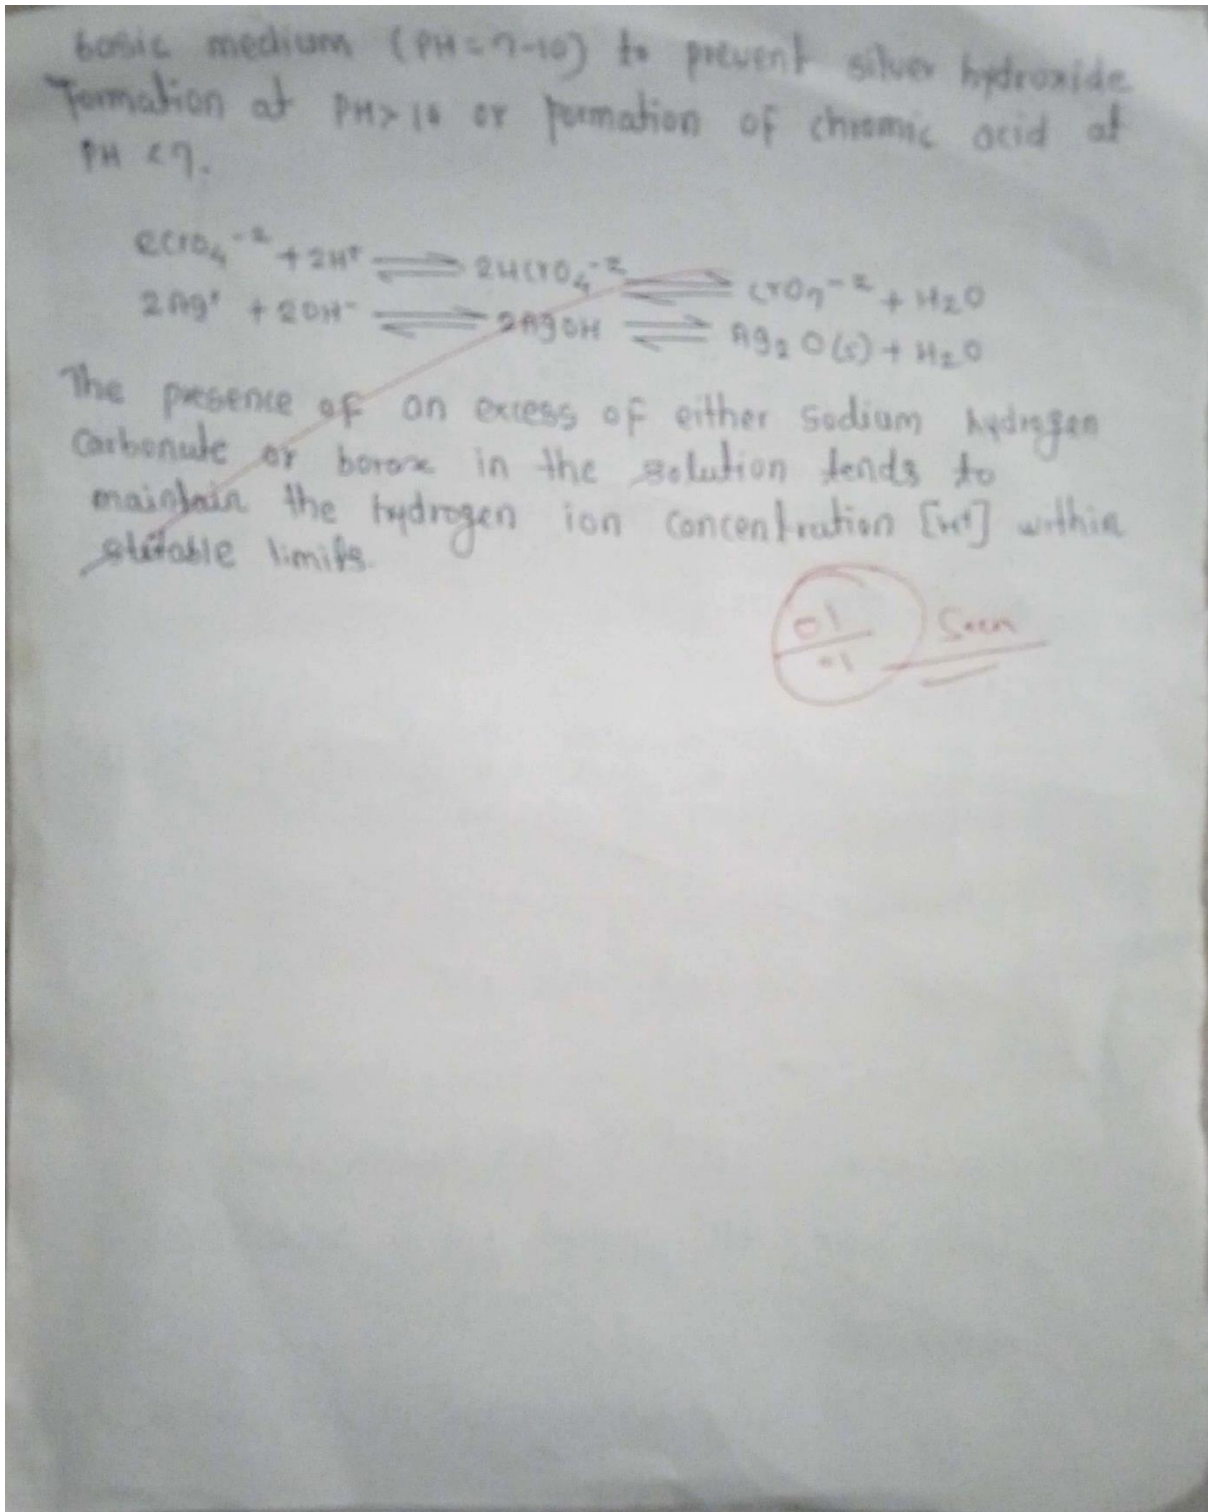 basic medium (PH = 7-10) to prevent silver hydroxide
Formation at PH > 10 or formation of chromic acid at
PH < 7.
2CrO₄⁻² + 2H⁺ ⇌ 2HCrO₄⁻² ⇌ CrO₇⁻² + H₂O
2Ag⁺ + 2OH⁻ ⇌ 2AgOH ⇌ Ag₂O(s) + H₂O
The presence of an excess of either Sodium hydrogen
Carbonate or borax in the solution tends to
maintain the hydrogen ion concentration [H⁺] within
suitable limits.
01 Seen
01